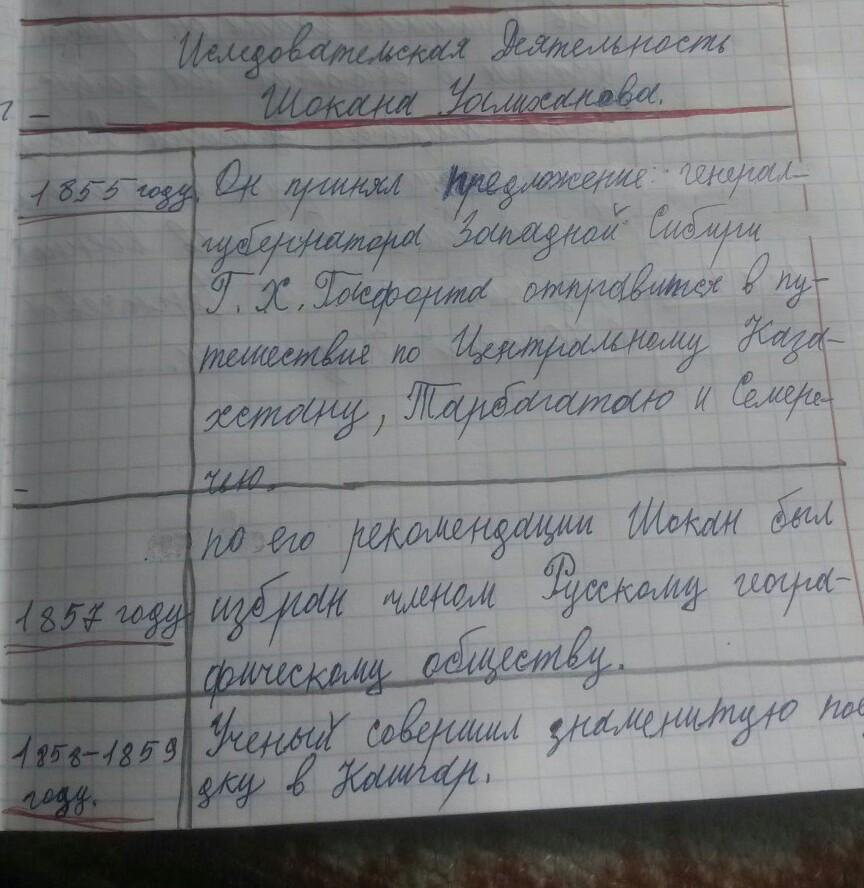 Иследовательская Деятельность
Шокана Уалиханова.
1855 году. Он принял предложение генерал-
губернатора Западной Сибири
Г. Х. Гасфорта отправится в пу-
тешествие по Центральному Каза-
хстану, Тарбагатаю и Семере-
чью.
по его рекомендации Шокан был
1857 году избран членом Русскому геогра-
фическому обществу.
1858-1859 Ученый совершил знаменитую пое
году. дку в Кашгар.